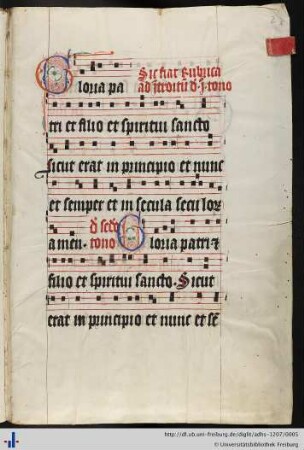 Sic fiat Rubrica
Gloria pa ad Jtroitū d. j. tono
tri et filio et spiritui sancto
sicut erat in principio et nunc
et semper et in secula seculor
d secō
amen. tono Gloria patri et
filio et spiritui sancto. Sicut
erat in principio et nunc et se
http://dl.ub.uni-freiburg.de/diglit/adhs-1207/0005
© Universitätsbibliothek Freiburg